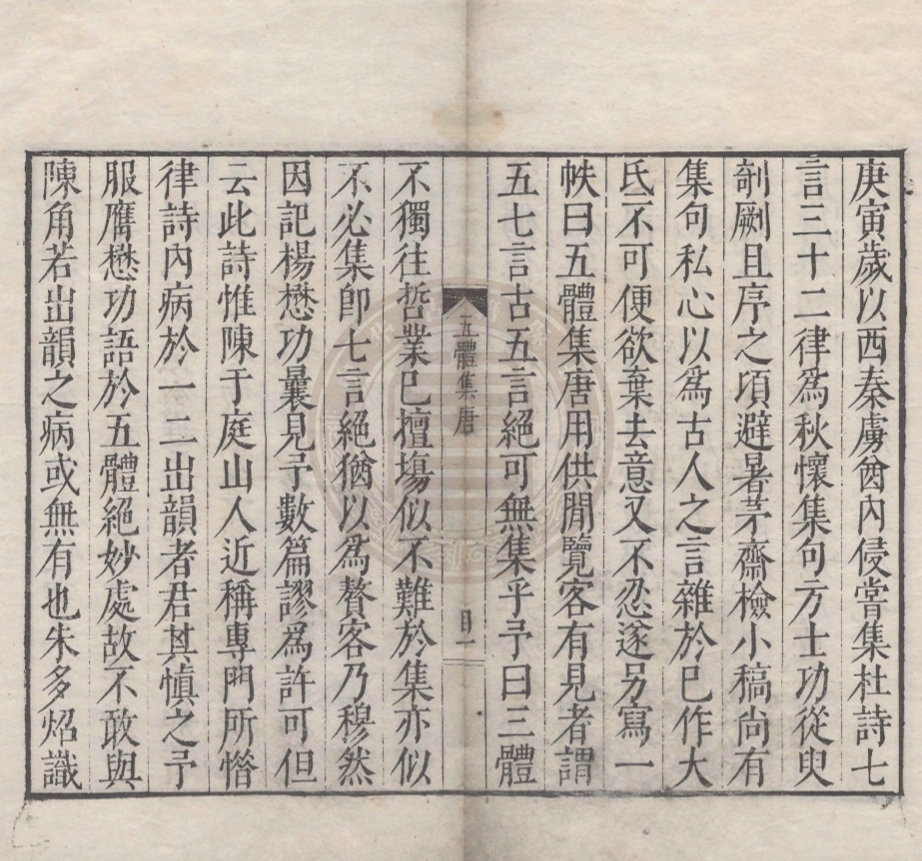 庚寅歲以西秦虜酋內侵嘗集杜詩七
言三十二律爲秋懷集句方士功從臾
剞劂且序之項避暑茅齋檢小稿尚有
集句私心以爲古人之言雜於已作大
氐不可便欲棄去意又不忍遂另寫一
帙曰五體集唐用供閒覽客有見者謂
五七言古五言絕可無集乎予曰三體
五體集唐
目一
不獨往哲業已擅塲似不難於集亦似
不必集即七言絕猶以爲贅客乃穆然
因記楊懋功曩見予數篇謬爲許可但
云此詩惟陳于庭山人近稱專門所㦧
律詩內病於一二出韻者君其愼之予
服膺懋功語於五體絕妙處故不敢與
陳角若出韻之病或無有也朱多炤識